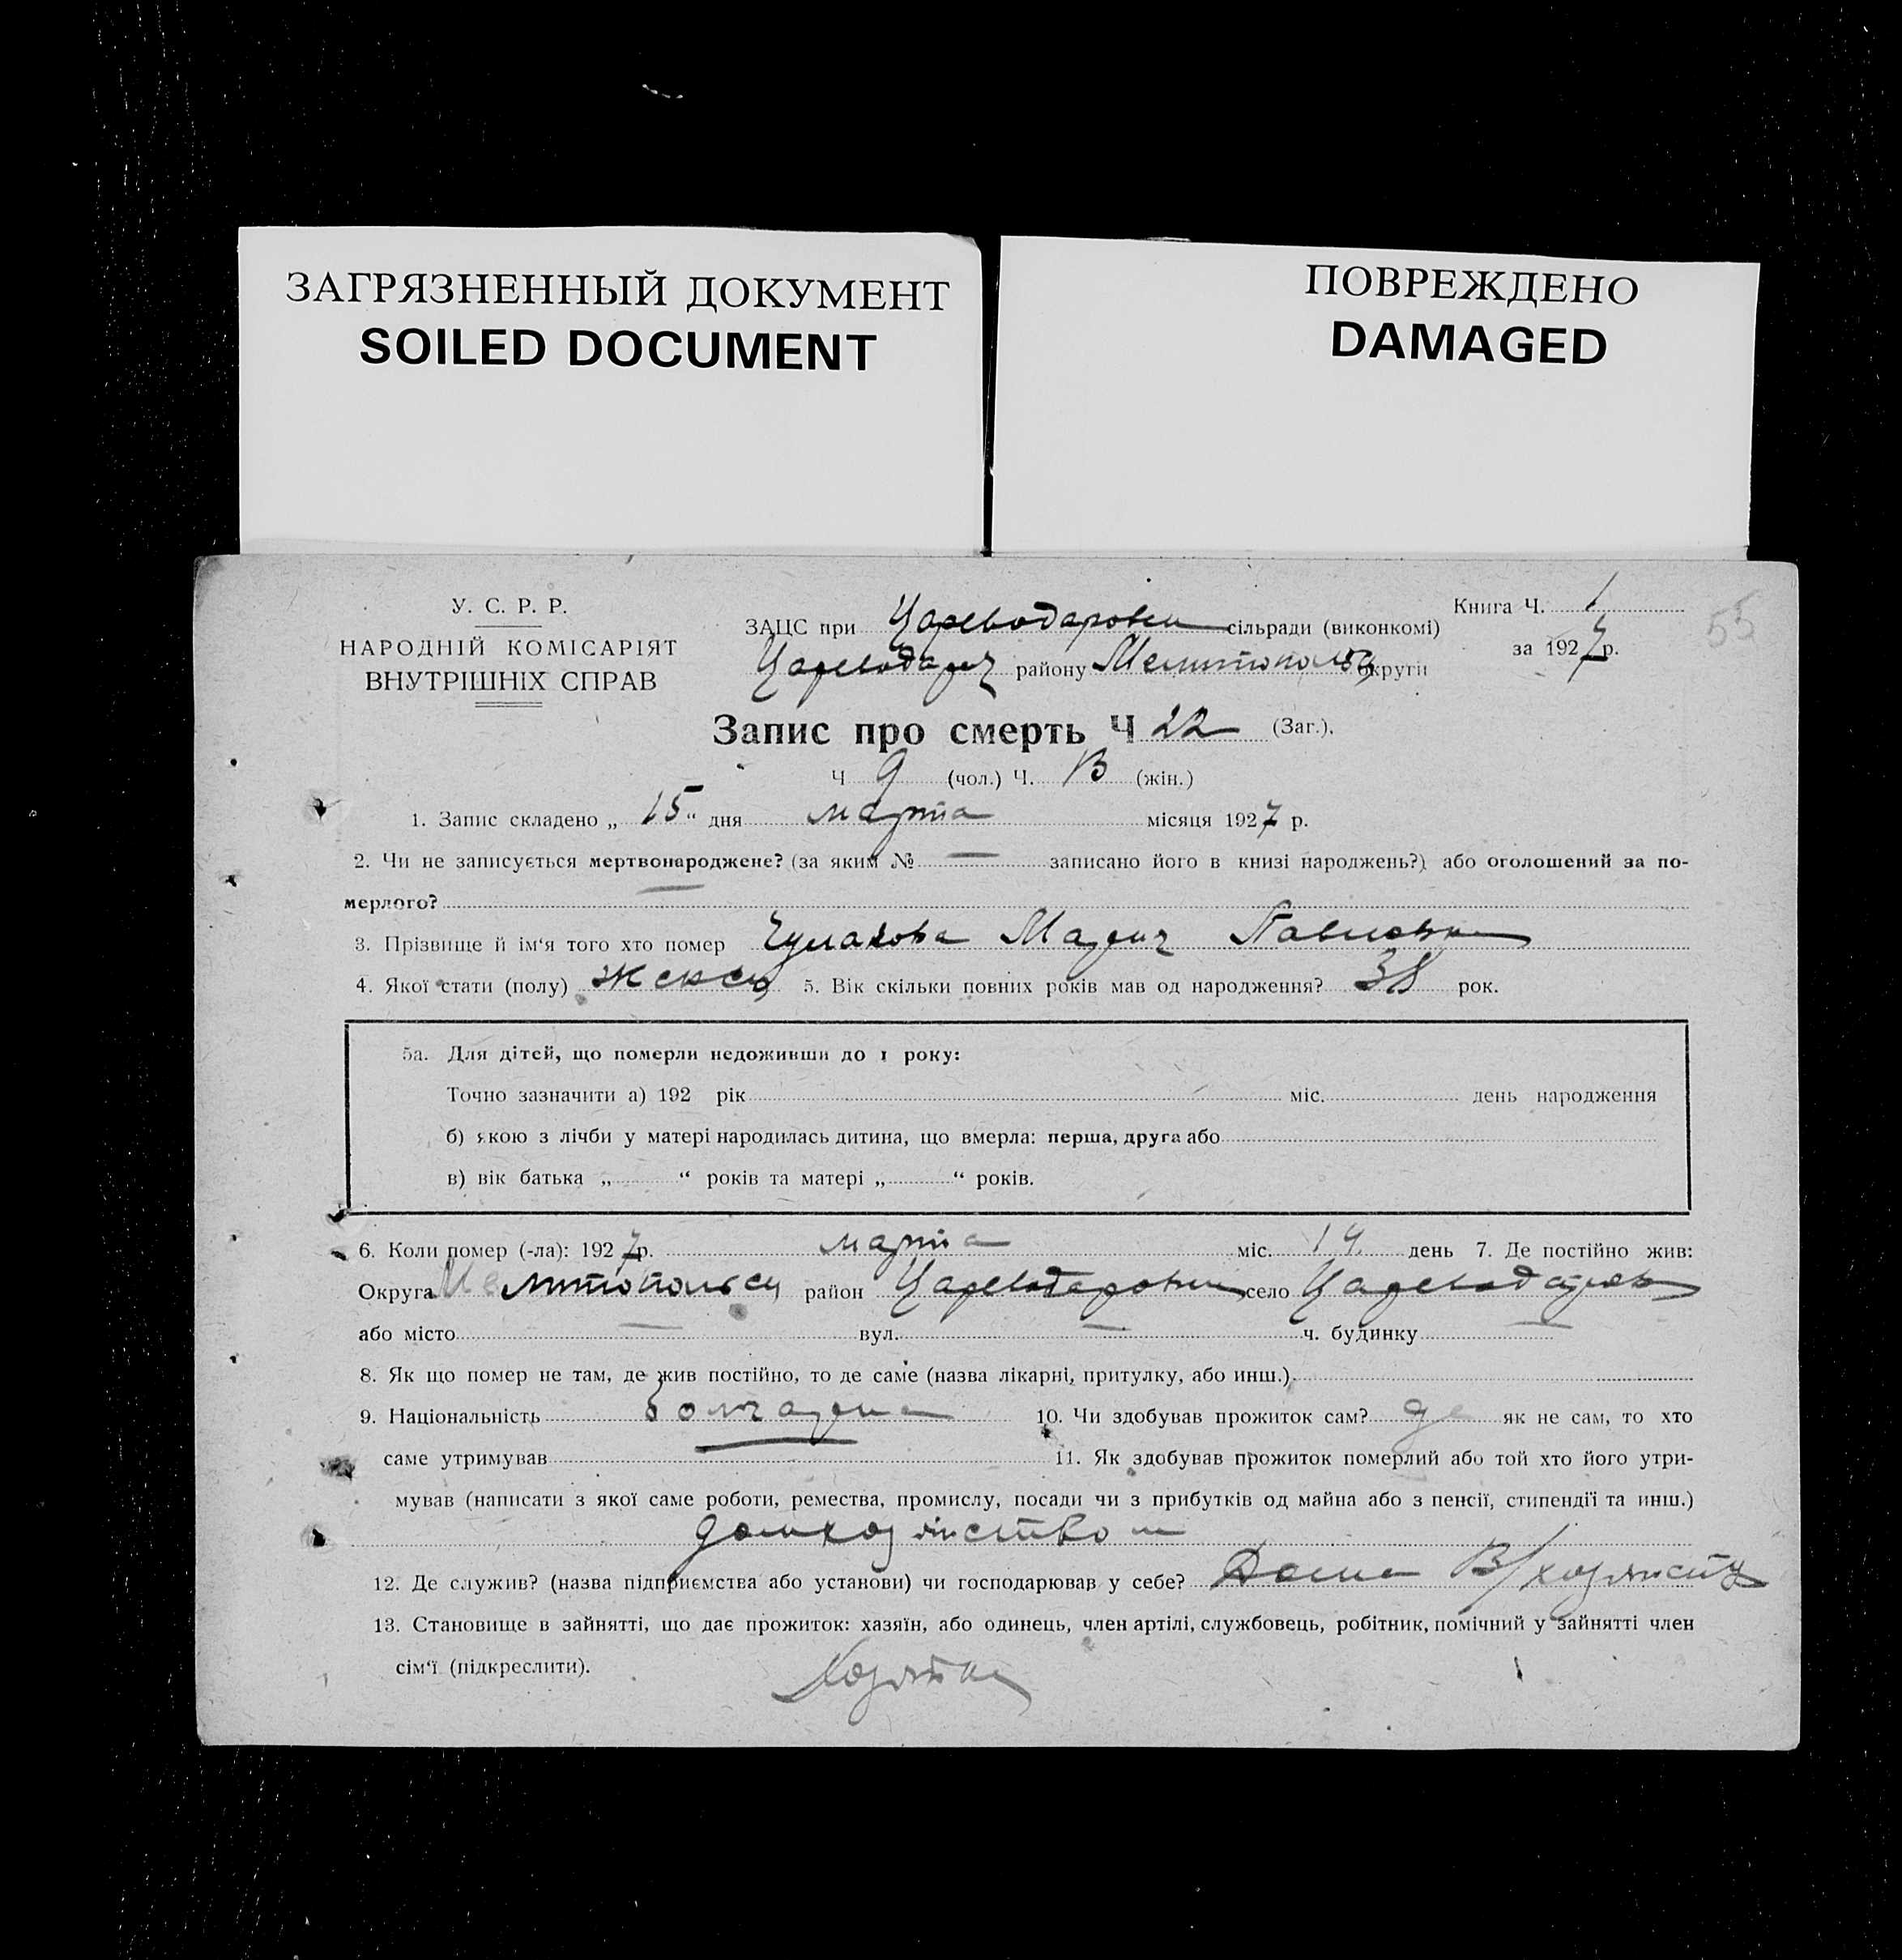 ЗАГРЯЗНЕННЫЙ ДОКУМЕНТ
SOILED DOCUMENT
ПОВРЕЖДЕНО
DAMAGED
У. С. Р. Р.
НАРОДНІЙ КОМІСАРІЯТ
ВНУТРІШНІХ СПРАВ
ЗАЦС при Цареводаровки сільради (виконкомі)
району округи
Книга Ч. 1
за 1927 р.
55
Запис про смерть Ч 22 (Заг.).
Ч 9 (чол.) Ч. 13 (жін.)
1. Запис складено „ 15 “ дня марта місяця 1927 р.
2. Чи не записується мертвонароджене? (за яким № — записано його в книзі народжень?) або оголошений за по-
мерлого? —
3. Прізвище й ім‘я того хто помер Мария Павловна
4. Якої стати (полу) женск 5. Вік скільки повних років мав од народження? 38 рок.
5а. Для дітей, що померли недоживши до 1 року:
Точно зазначити а) 192 рік міс. день народження
б) якою з лічби у матері народилась дитина, що вмерла: перша, друга або
в) вік батька „ “ років та матері „ “ років.
6. Коли помер (-ла): 1927 р. марта міс. 14 день 7. Де постійно жив:
Округа район село
або місто — вул. — ч. будинку —
8. Як що помер не там, де жив постійно, то де саме (назва лікарні, притулку, або инш.)
9. Національність болгарка 10. Чи здобував прожиток сам? да як не сам, то хто
саме утримував 11. Як здобував прожиток померлий або той хто його утри-
мував (написати з якої саме роботи, ремества, промислу, посади чи з прибутків од майна або з пенсії, стипендії та инш.)
домхозяйством
12. Де служив? (назва підприємства або установи) чи господарював у себе? Дома В/хозяйст
13. Становище в зайнятті, що дає прожиток: хазяїн, або одинець, член артілі, службовець, робітник, помічний у зайнятті член
сім‘ї (підкреслити). Хозяйка